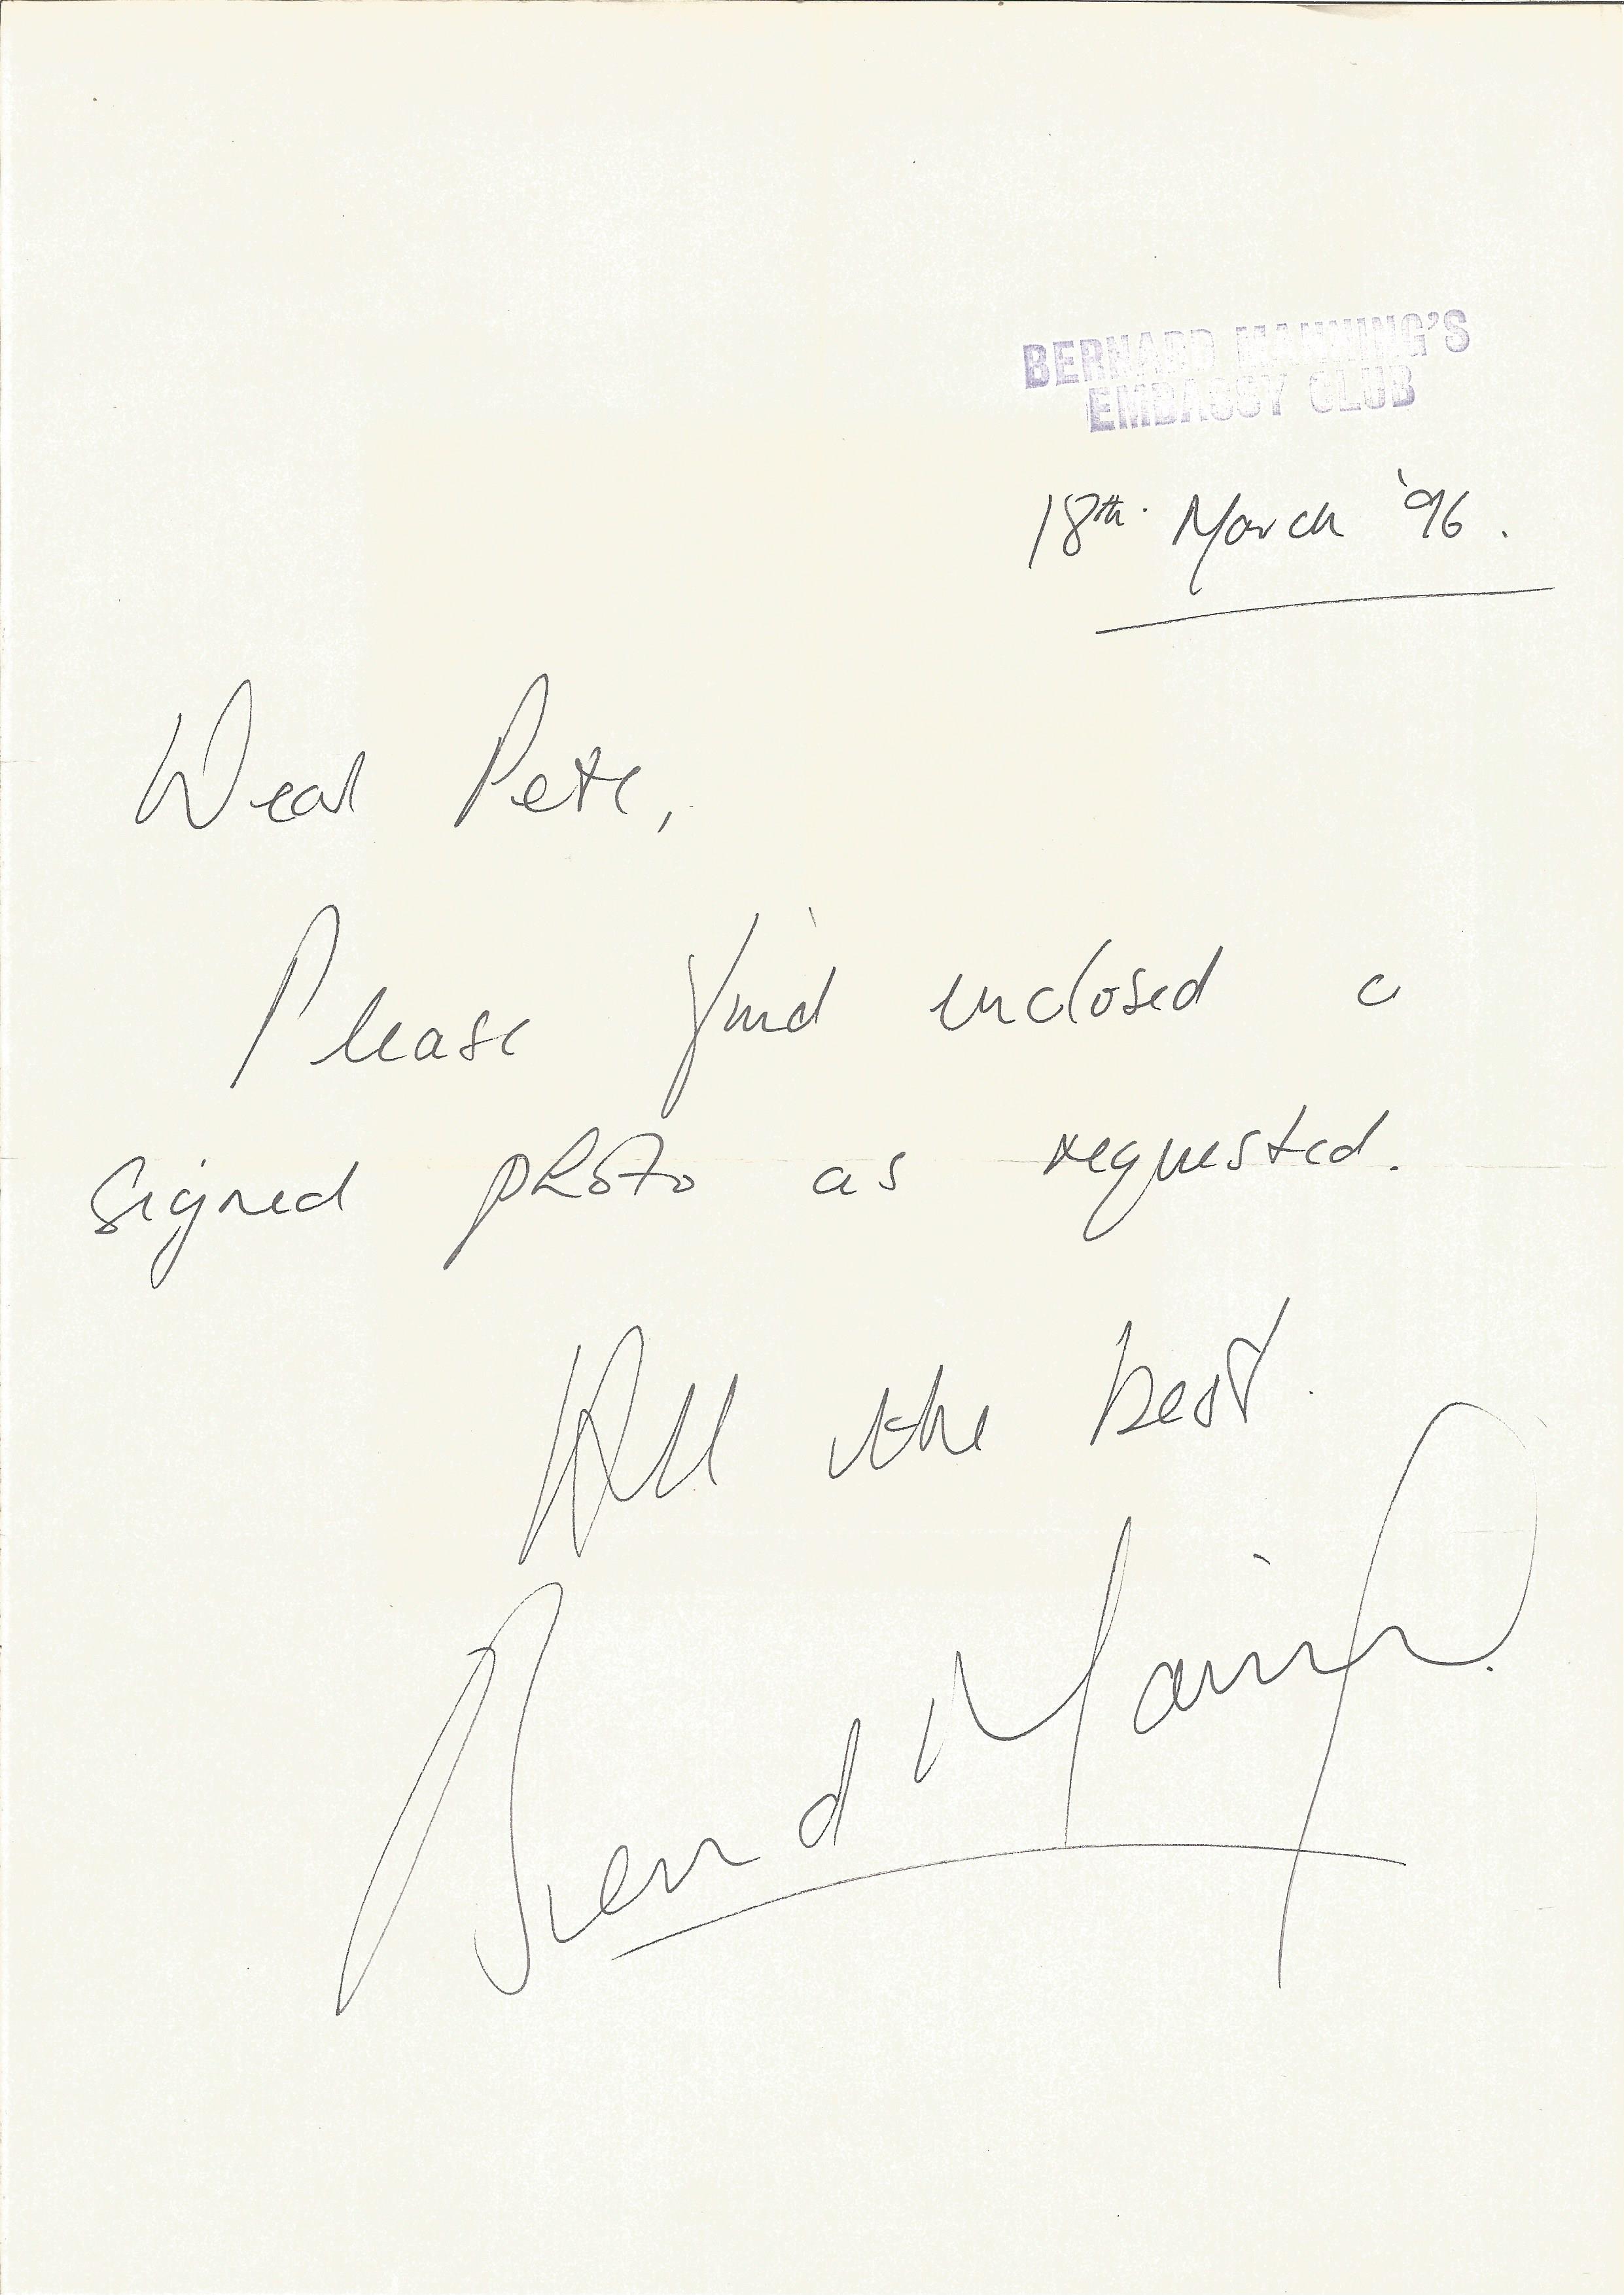 BERNARD MANNING'S
EMBASSY CLUB
18th. March '96.
Dear Pete,
Please find enclosed a
signed photo as requested.
All the best.
Bernard Manning.